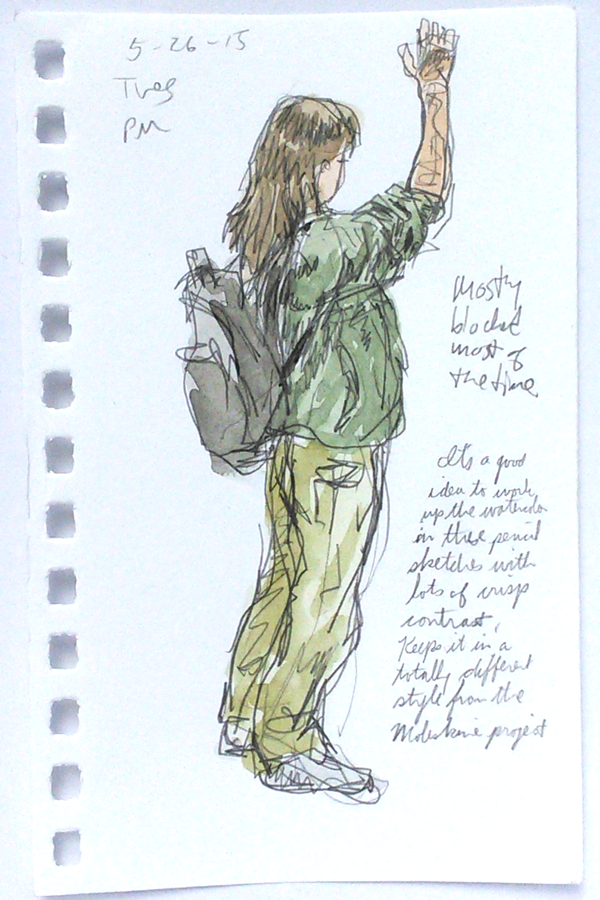 5-26-15
Tues
PM
Mostly
blocked
most of
the time
It's a good
idea to work
up the watercolor
in these pencil
sketches with
lots of crisp
contrast,
Keeps it in a
totally different
style from the
Moleskine project